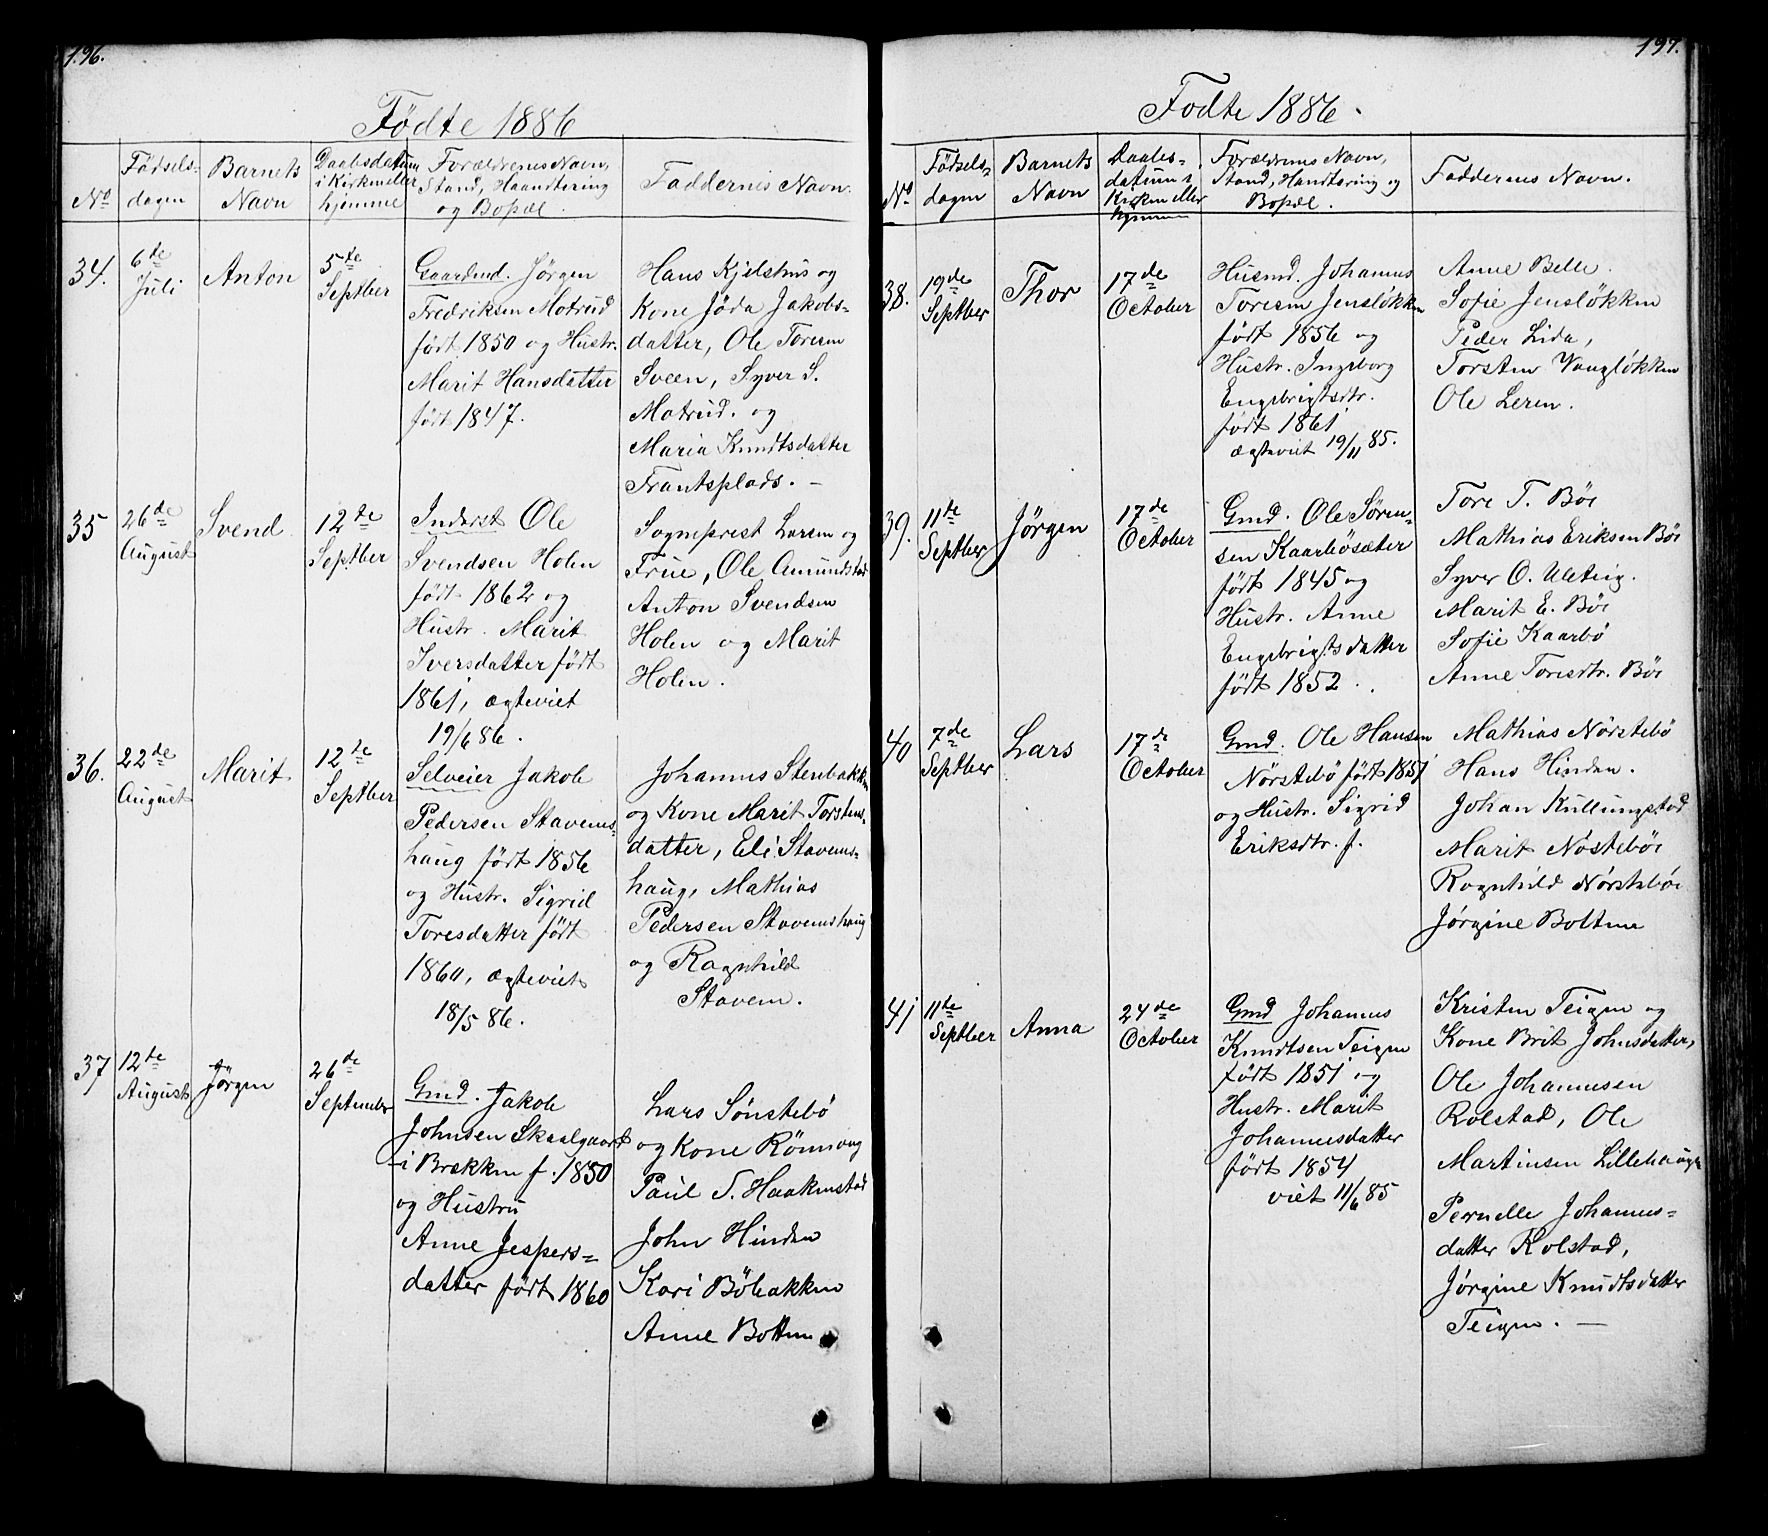 196.
Födte 1886
No
Födsels-
dagen
Barnets
Navn
Daabsdatum
i Kirken eller
hjemme
Forældrenes Navn,
Stand, Haandtering
og Bopæl.
Faddernes Navn.
34.
6te
Juli
Anton
5te
Septber
Gaardmd. Jörgen
Fredriksen Motrud
født 1850 og Hustr.
Marit Hansdatter
født 1847.
Hans Kjelshus og
Kone Jöda Jakobs-
datter, Ole Toresen
Sveen, Syver S.
Motrud. og
Maria Knudtsdatter
Frantsplads. —
35
26de
August
Svend
12te
Septber
Inderst Ole
Svendsen Holen
født 1862 og
Hustr. Marit
Iversdatter født
1861, ægteviet
19/6 86.
Sogneprest Larsen og
Frue, Ole Amundstad
Anton Svendsen
Holen og Marit
Holen.
36.
22de
August
Marit
12te
Septber
Selveier Jakob
Pedersen Stavens-
haug født 1856
og Hustr. Sigrid
Toresdatter født
1860, ægteviet
18/5 86.
Johannes Stenbakken
og Kone Marit Torstens-
datter, Eli Stavens-
haug, Mathias
Pedersen Stavenshaug
og Ragnhild
Staven.
37
12te
August
Jörgen
26de
September
Gmd. Jakob
Johnsen Skaalgaard
i Brækken f. 1850
og Hustru
Anne Jespers-
datter født 1860
Lars Sönstebö
og Kone Rönnaug
Paul S. Haakenstad
John Hinden
Kari Böbakken
Anne Botten
197.
Födte 1886.
No
Fødsels-
dagen
Barnets
Navn
Daabs-
datum i
Kirken eller
hjemme
Forældrenes Navn,
Stand, Handtering og
Bopæl.
Faddernes Navn.
38.
19de
Septber
Thor
17de
October
Husmd. Johannes
Toresen Jensløkken
født 1856 og
Hustr. Ingeborg
Engebrigtsdtr.
født 1861
ægteviet 19/11 85.
Anne Belle.
Sofie Jensløkken
Peder Lida,
Torsten Vangløkken
Ole Leren.
39.
11te
Septber
Jörgen
17de
October
Gmd. Ole Sören-
sen Kaarbösæter
født 1845 og
Hustr. Anne
Engebrigtsdatter
født 1852.
Tore T. Böe
Mathias Eriksen Böe
Syver O. Uleteig.
Marit E. Böe
Sofie Kaarbö
Anne Toresdtr. Böe
40
7de
Septber
Lars
17de
October
Gmd. Ole Hansen
Nörstebö født 1851
og Hustr. Sigrid
Eriksdtr. f.
Mathias Nörstebö
Hans Hinden.
Johan Kullungstad
Marit Nösteböe
Ragnhild Nörsteböe
Jörgine Boltene
41
11te
Septber
Anna
24de
October
Gmd Johannes
Knudtsen Teigen
født 1851 og
Hustr. Marit
Johannesdatter
født 1854
viet 11/6 85
Kristen Teigen og
Kone Brit Johnsdatter,
Ole Johannesen
Rolstad, Ole
Martinsen Lillehaugen
Pernelle Johannes-
datter Rolstad,
Jörgine Knudtsdatter
Teigen. —